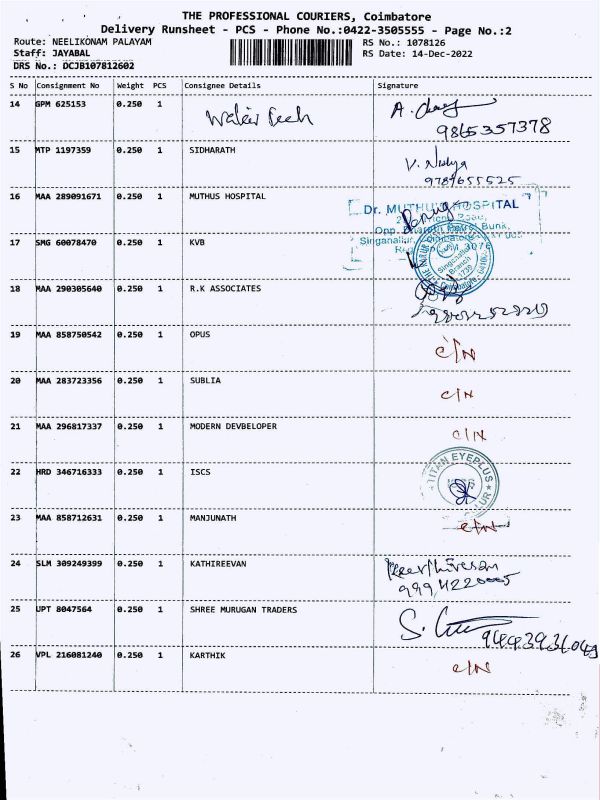 THE PROFESSIONAL COURIERS, Coimbatore
Delivery Runsheet - PCS - Phone No.:0422-3505555 - Page No.:2
Route: NEELIKONAM PALAYAM RS No.: 1078126
Staff: JAYABAL RS Date: 14-Dec-2022
DRS No.: DCJB107812602
S No Consignment No Weight PCS Consignee Details Signature
14 GPM 625153 0.250 1 A.
9865357378
15 MTP 1197359 0.250 1 SIDHARATH V. Nidya
9789655525
16 MAA 289091671 0.250 1 MUTHUS HOSPITAL Dr. MUTHU'S HOSPITAL
17 SMG 60078470 0.250 1 KVB Singanallur, Coimbatore
Singanallur
Branch
18 MAA 290305640 0.250 1 R.K ASSOCIATES
19 MAA 858750542 0.250 1 OPUS C/N
20 MAA 283723356 0.250 1 SUBLIA C/N
21 MAA 296817337 0.250 1 MODERN DEVBELOPER C/N
22 HRD 346716333 0.250 1 ISCS TITAN EYEPLUS
23 MAA 858712631 0.250 1 MANJUNATH C/N
24 SLM 309249399 0.250 1 KATHIREEVAN
25 UPT 8047564 0.250 1 SHREE MURUGAN TRADERS S.
26 VPL 216081240 0.250 1 KARTHIK C/N